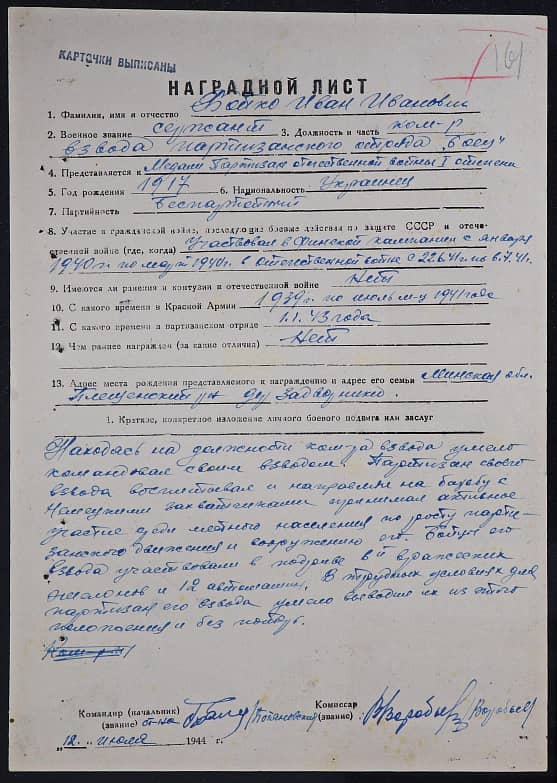 КАРТОЧКИ ВЫПИСАНЫ
161
НАГРАДНОЙ ЛИСТ
1. Фамилия, имя и отчество Бойко Иван Иванович
2. Военное звание сержант 3. Должность и часть ком-р
взвода партизанского отряда "Боец"
4. Представляется к Медали Партизан отечественной войны I степени
5. Год рождения 1917 6. Национальность Украинец
7. Партийность Беспартейный
8. Участие в гражданской войне, последующих боевых действиях по защите СССР и отече-
ственной войне (где, когда) Участвовал в Финской кампании с января
1940 г. по март 1940 г. в отечественной войне с 22.6.41 г. по 8.7.41.
9. Имеются ли ранения и контузии в отечественной войне Нет
10. С какого времени в Красной Армии 1939 г. по июль м-ц 1941 года
11. С какого времени в партизанском отряде 1.1.43 года
12. Чем ранее награжден (за какие отличия) Нет
13. Адрес места рождения представляемого к награждению и адрес его семьи Минская обл.
Плещенский р-н дер.
1. Краткое, конкретное изложение личного боевого подвига или заслуг
Находясь на должности ком-ра взвода умело
командовал своим взводом. Партизан своего
взвода воспитывал и направлял на борьбу с
Немецкими захватчиками принимал активное
участие среди местного населения по росту парти-
занского движения и вооружению его. Бойцы его
взвода участвовали в подрыве 8й вражеских
эшелонов и 12 автомашин. В трудных условиях для
партизан его взвода умело выводил их из этого
положения и без потерь.
Командир (начальник) Комиссар
(звание) ст. л-на (звание) /Воробьев/
"12" июля 1944 г.